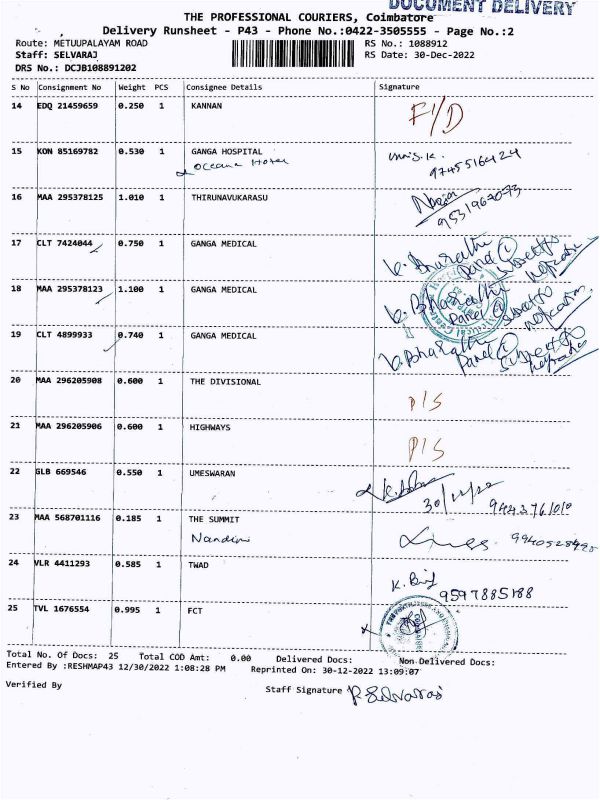 DOCUMENT DELIVERY
THE PROFESSIONAL COURIERS, Coimbatore
Delivery Runsheet - P43 - Phone No.:0422-3505555 - Page No.:2
Route: METUUPALAYAM ROAD RS No.: 1088912
Staff: SELVARAJ RS Date: 30-Dec-2022
DRS No.: DCJB108891202
S No Consignment No Weight PCS Consignee Details Signature
14 EDQ 21459659 0.250 1 KANNAN F/D
15 KON 85169782 0.530 1 GANGA HOSPITAL
Oceana Hotel 9745516424
16 MAA 295378125 1.010 1 THIRUNAVUKARASU
9531967073
17 CLT 7424044 0.750 1 GANGA MEDICAL
18 MAA 295378123 1.100 1 GANGA MEDICAL
19 CLT 4899933 0.740 1 GANGA MEDICAL
20 MAA 296205908 0.600 1 THE DIVISIONAL D/S
21 MAA 296205906 0.600 1 HIGHWAYS D/S
22 GLB 669546 0.550 1 UMESWARAN
23 MAA 568701116 0.185 1 THE SUMMIT
Nandini
24 VLR 4411293 0.585 1 TWAD
9597885188
25 TVL 1676554 0.995 1 FCT
Total No. Of Docs: 25 Total COD Amt: 0.00 Delivered Docs: Non Delivered Docs:
Entered By :RESHMAP43 12/30/2022 1:08:28 PM Reprinted On: 30-12-2022 13:09:07
Verified By Staff Signature P. Selvaraj